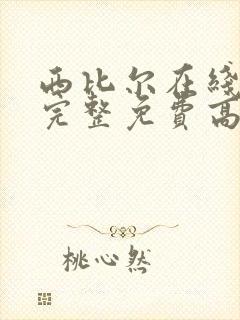 西比尔在綫
完整免費高
桃心然